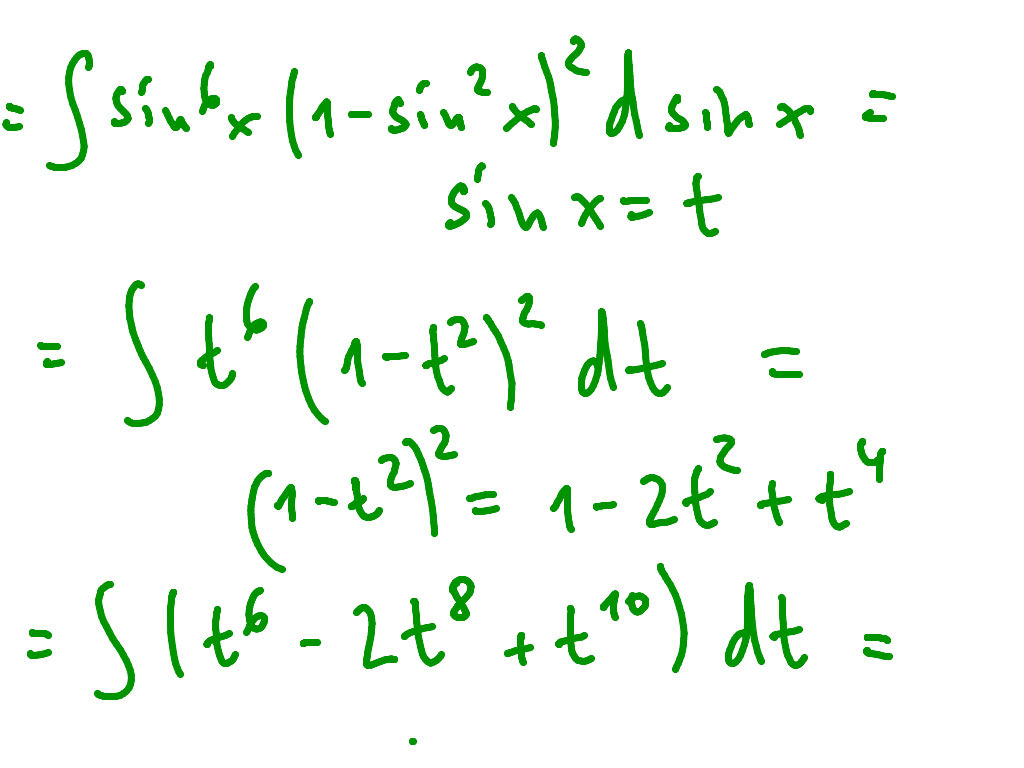 = ∫ sin⁶x (1 - sin²x)² d sin x =
sin x = t
= ∫ t⁶ (1 - t²)² dt =
(1 - t²)² = 1 - 2t² + t⁴
= ∫ (t⁶ - 2t⁸ + t¹⁰) dt =